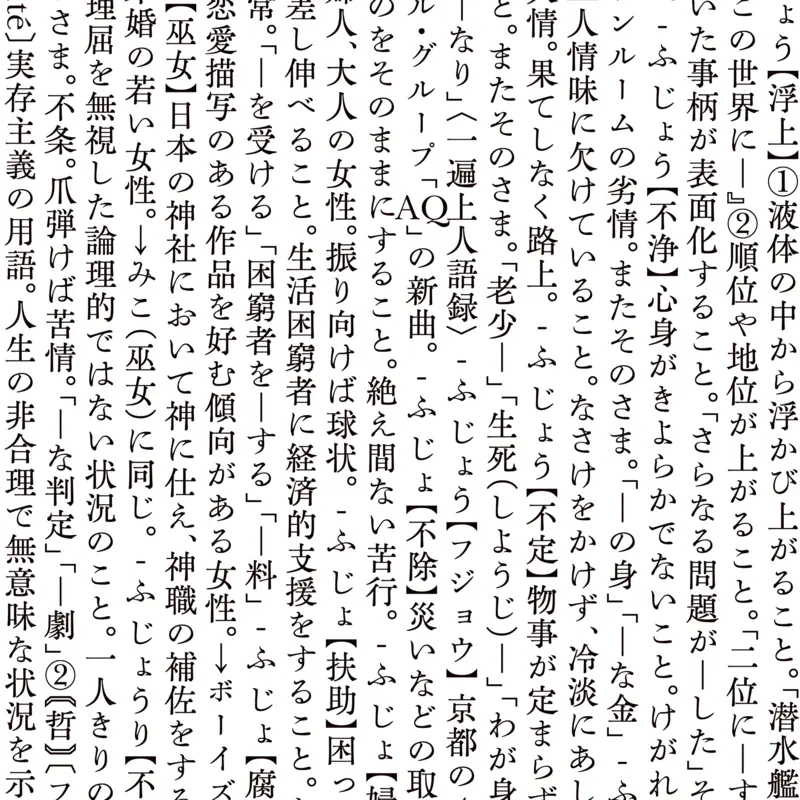 ょう【浮上】①液体の中から浮かび上がること。「潜水艦
この世界に―』②順位や地位が上がること。「二位に―す
いた事柄が表面化すること。「さらなる問題が―した」そ
。-ふじょう【不浄】心身がきよらかでないこと。けがれ
ンルームの劣情。またそのさま。「―の身」「―な金」-ふ
人情味に欠けていること。なさけをかけず、冷淡にあし
情。果てしなく路上。-ふじょう【不定】物事が定まらず
と。またそのさま。「老少―」「生死(しようじ)―」「わが身
―なり」〈一遍上人語録〉-ふじょう【フジョウ】京都の
ル・グループ「AQ」の新曲。-ふじょ【不除】災いなどの取
のをそのままにすること。絶え間ない苦行。-ふじょ【婦
婦人、大人の女性。振り向けば球状。-ふじょ【扶助】困っ
差し伸べること。生活困窮者に経済的支援をすること。
常。「―を受ける」「困窮者を―する」「―料」-ふじょ【腐
恋愛描写のある作品を好む傾向がある女性。→ボーイズ
【巫女】日本の神社において神に仕え、神職の補佐をする
婚の若い女性。→みこ(巫女)に同じ。-ふじょうり【不
理屈を無視した論理的ではない状況のこと。一人きりの
さま。不条。爪弾けば苦情。「―な判定」「―劇」②〘哲〙〔フ
té〕実存主義の用語。人生の非合理で無意味な状況を示